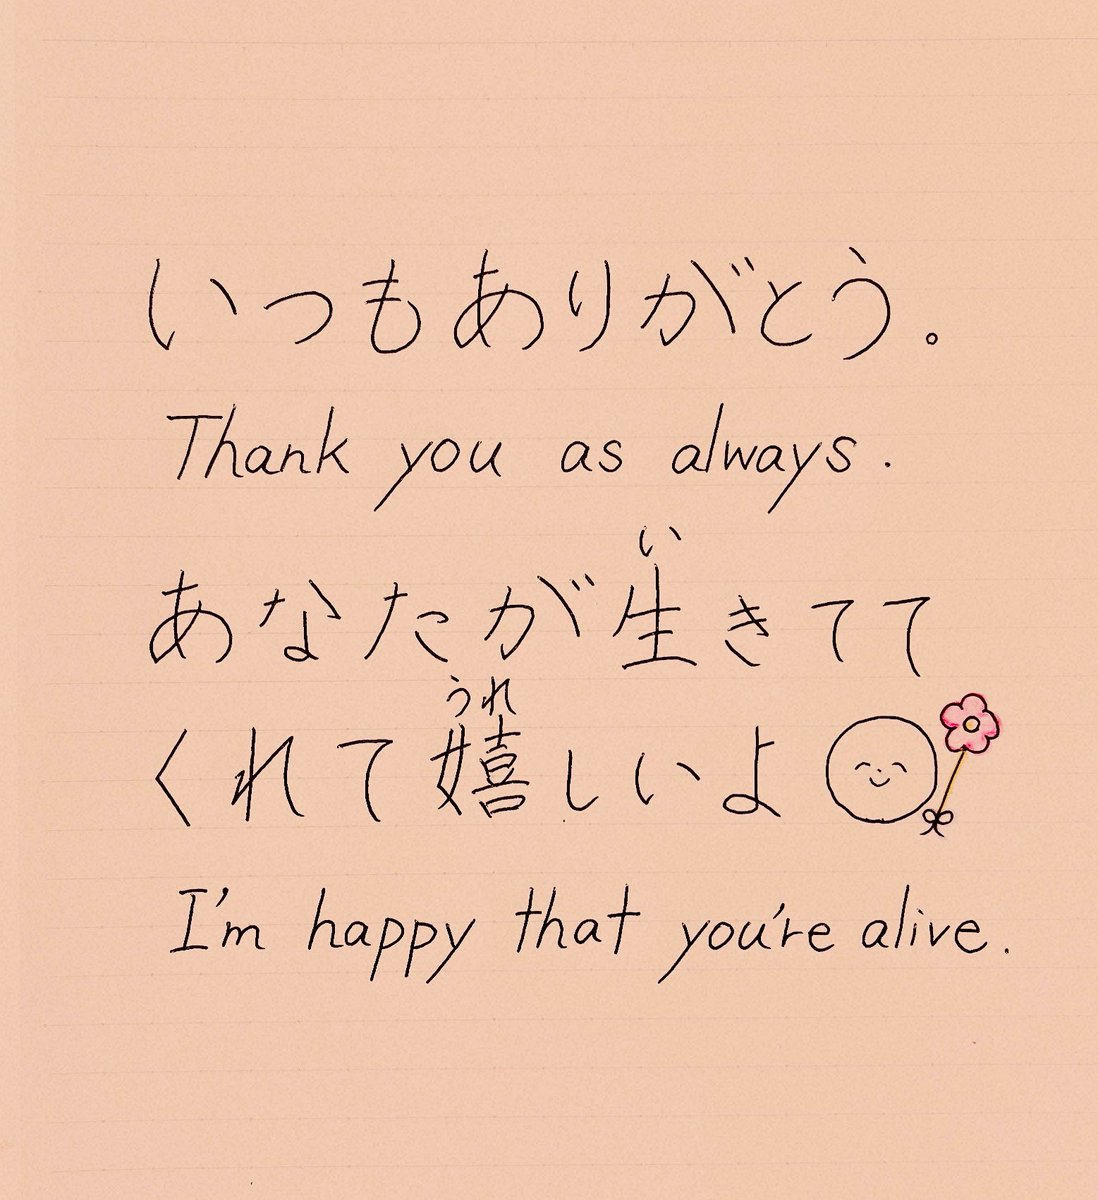 いつもありがとう。
Thank you as always.
い
あなたが生きてて
うれ
くれて嬉しいよ
I'm happy that you're alive.